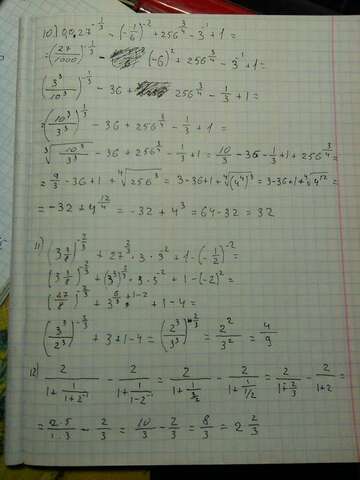 10) 0,027^(-1/3) - (-1/6)^(-2) + 256^(3/4) - 3^(-1) + 1 =
= (27/1000)^(-1/3) - (-6)^2 + 256^(3/4) - 3^(-1) + 1 =
(3^3/10^3)^(-1/3) - 36 + 256^(3/4) - 1/3 + 1 =
(10^3/3^3)^(1/3) - 36 + 256^(3/4) - 1/3 + 1 =
∛(10^3/3^3) - 36 + 256^(3/4) - 1/3 + 1 = 10/3 - 36 - 1/3 + 1 + 256^(3/4) =
= 9/3 - 36 + 1 + ∜(256^3) = 3 - 36 + 1 + ∜((4^4)^3) = 3 - 36 + 1 + ∜(4^12) =
= -32 + 4^(12/4) = -32 + 4^3 = 64 - 32 = 32
11) (3 3/8)^(-2/3) + 27^(2/3) · 3 · 3^(-2) + 1 - (-1/2)^(-2) =
(3 3/8)^(-2/3) + (3^3)^(2/3) · 3 · 3^(-2) + 1 - (-2)^2 =
(27/8)^(-2/3) + 3^(6/3 + 1 - 2) + 1 - 4 =
(3^3/2^3)^(-2/3) + 3 + 1 - 4 = (2^3/3^3)^(2/3) = 2^2/3^2 = 4/9
12) 2/(1 + 1/(1 + 2^(-1))) - 2/(1 + 1/(1 - 2^(-1))) = 2/(1 + 1/(3/2)) - 2/(1 + 1/(1/2)) = 2/(1 + 2/3) - 2/(1 + 2) =
= 2·5/(1·3) - 2/3 = 10/3 - 2/3 = 8/3 = 2 2/3